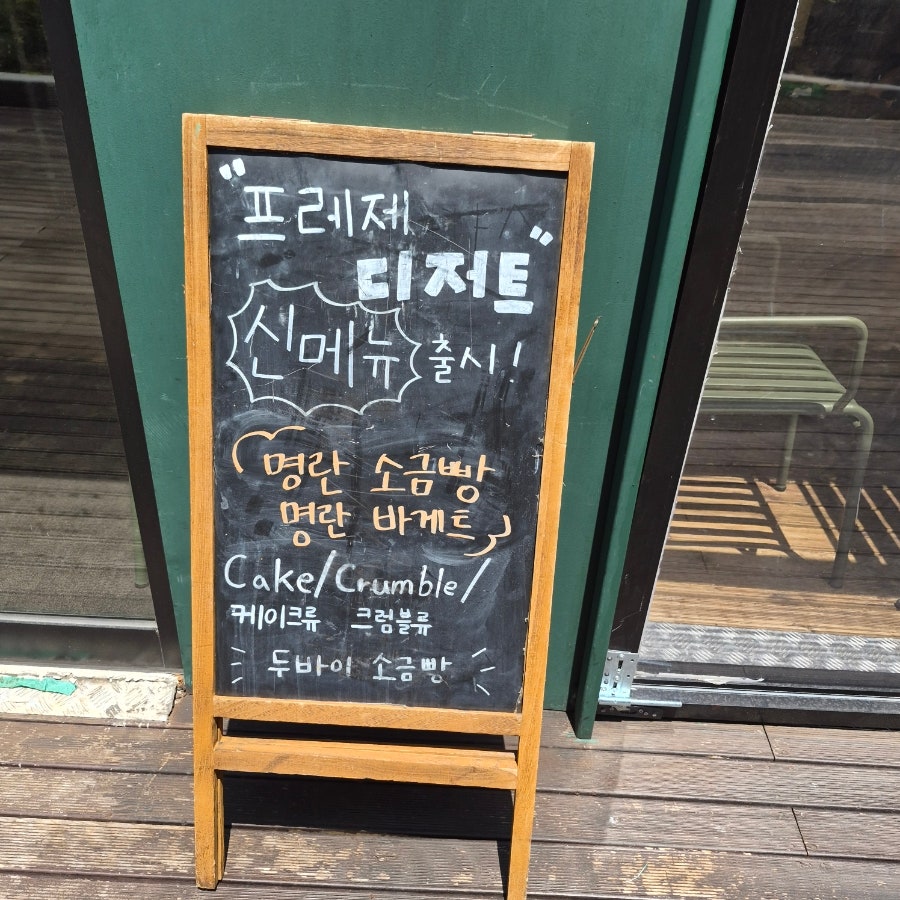 "프레제
디저트"
신메뉴 출시!
명란 소금빵
명란 바게트
Cake/Crumble/
케이크류 크럼블류
두바이 소금빵